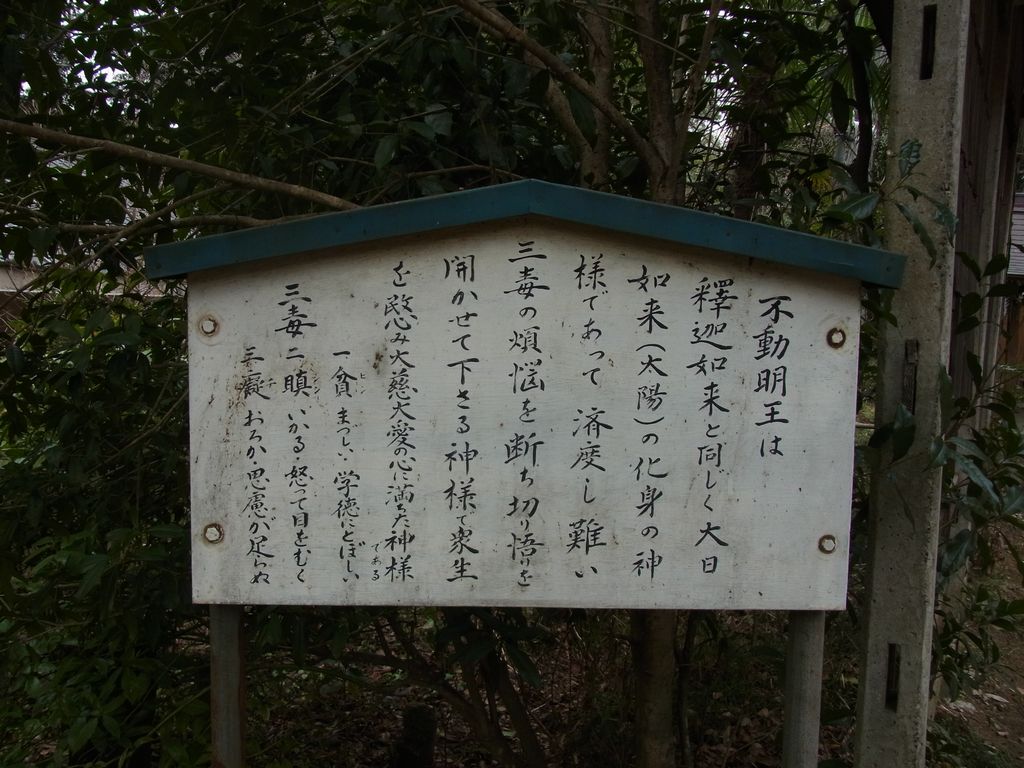 不動明王は
釋迦如来と同じく大日
如来(太陽)の化身の神
様であって済度し難い
三毒の煩悩を断ち切り悟りを
開かせて下さる神様で衆生
を愍み大慈大愛の心に満ちた神様
である
三毒
一貪 ヒン まづしい 学徳にとぼしい
二瞋 シン いかる・怒って目をむく
三癡 チ おろか 思慮が足らぬ